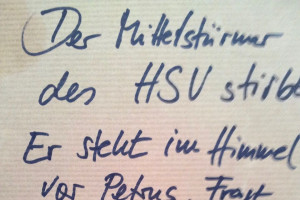 Der Mittelstürmer
des HSV stirbt
Er steht im Himmel
vor Petrus. Fragt